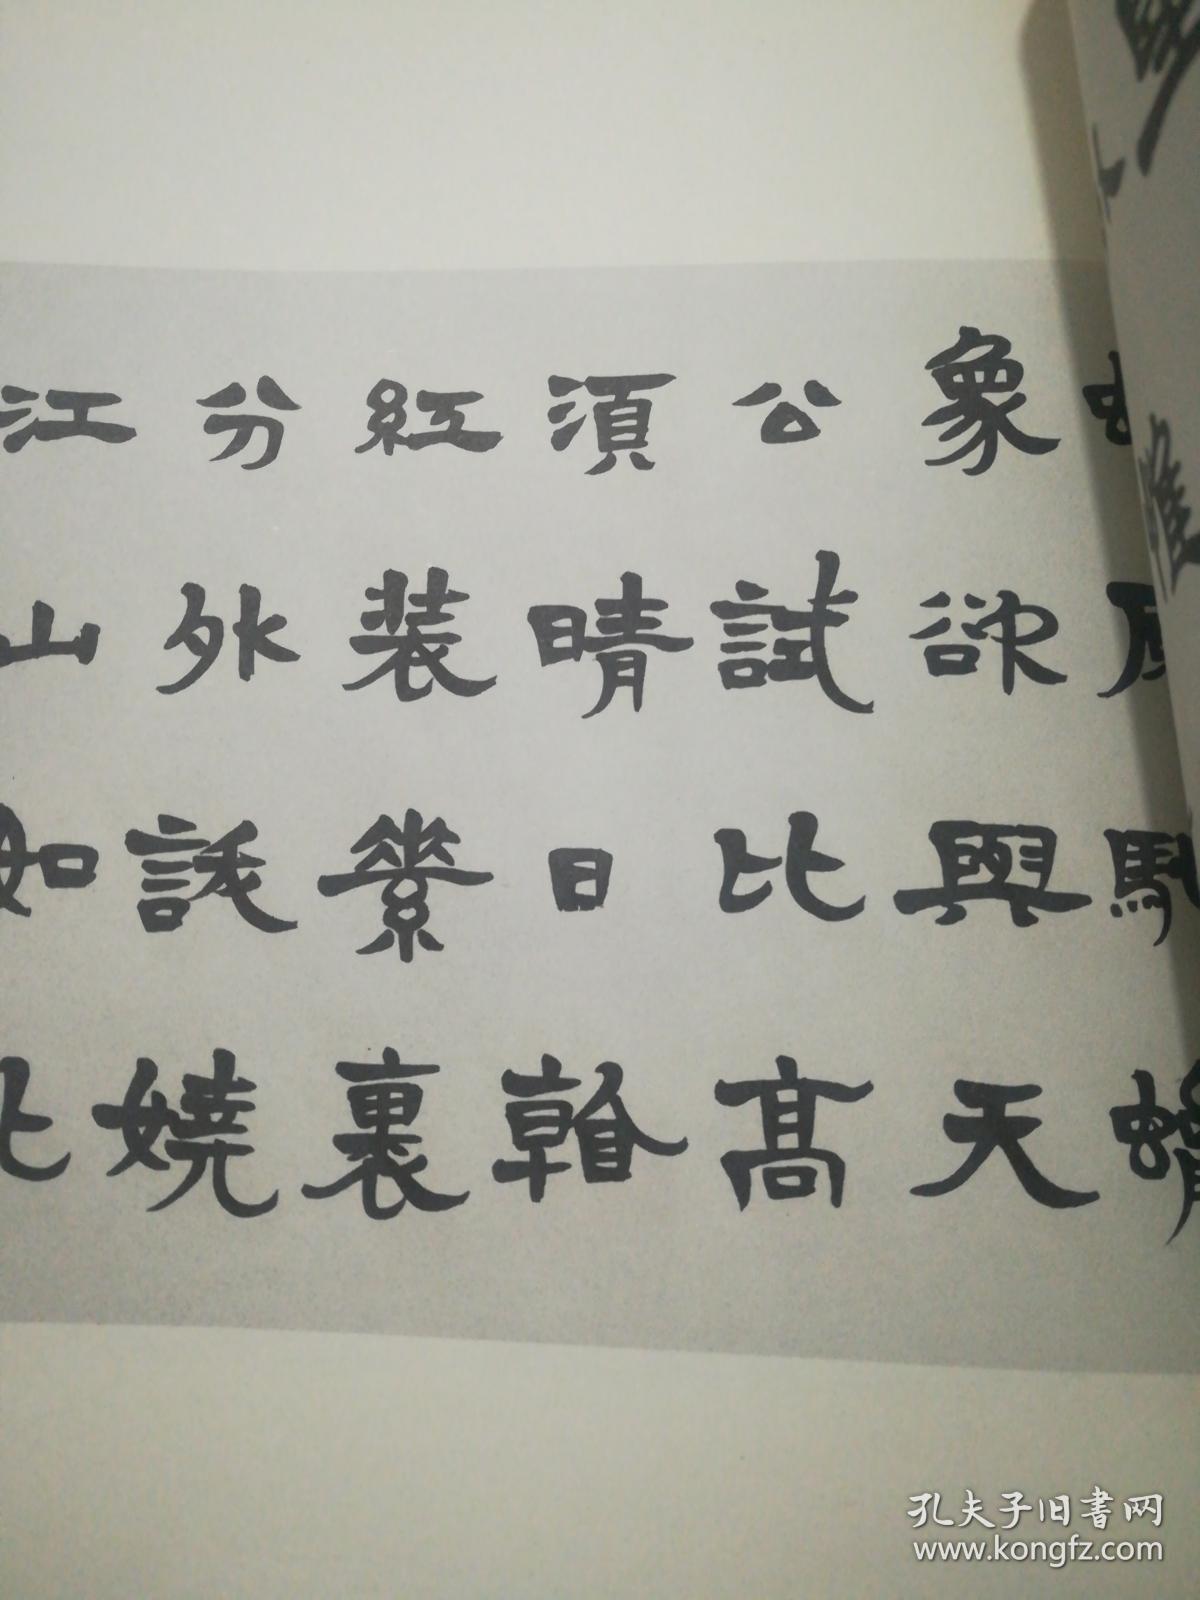 象欲與天
公試比高
須晴日看
紅裝素裹
分外訞嬈
江山如此
孔夫子旧书网
www.kongfz.com